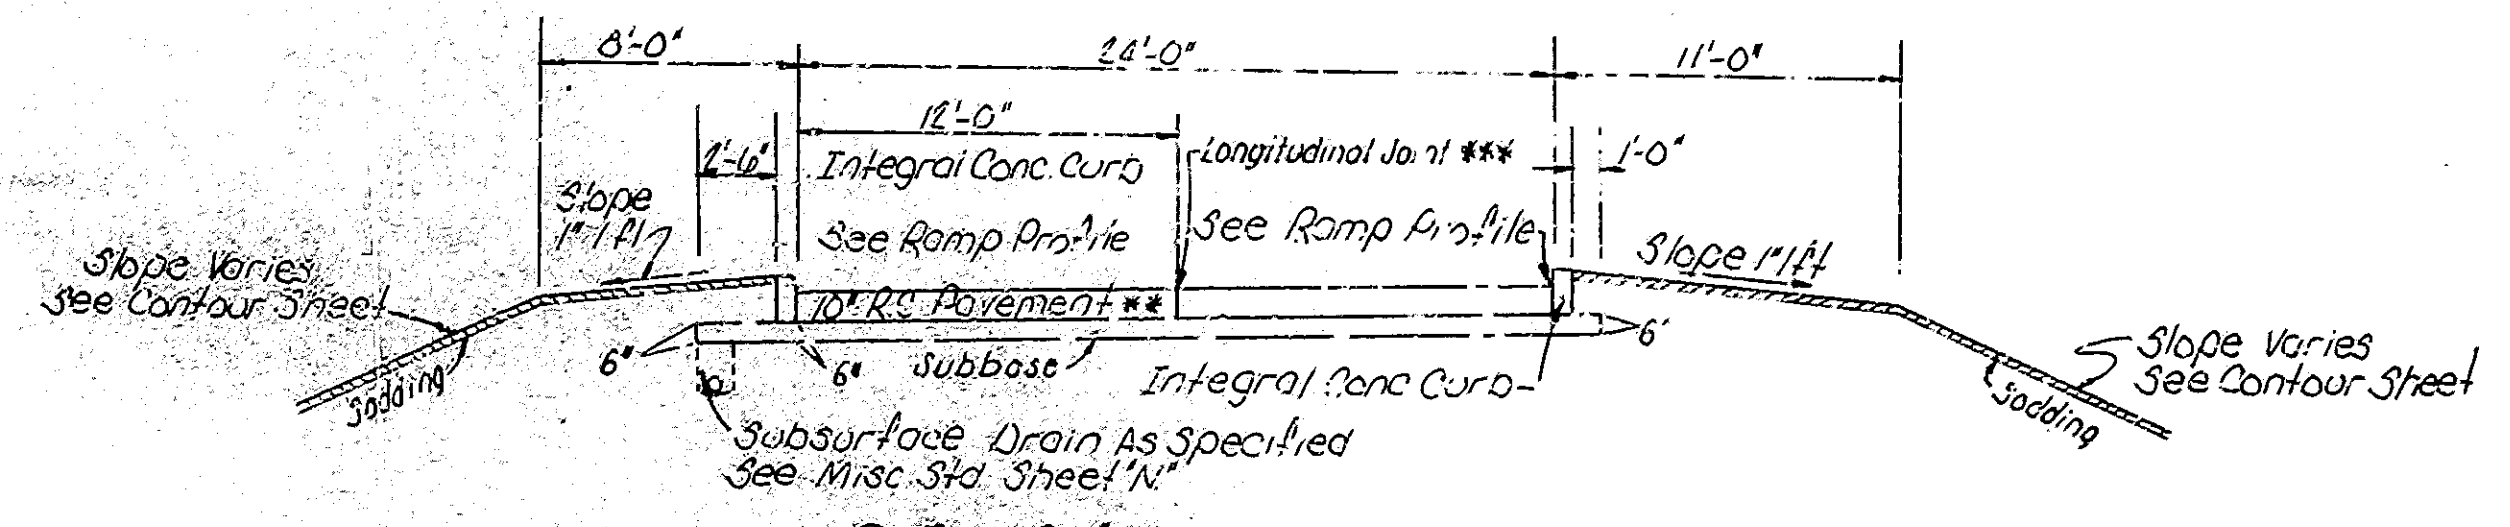 8'-0"
24'-0"
11'-0"
12'-0"
2'-6"
Integral Conc. Curb
Longitudinal Joint ***
1'-0"
Slope
1" / ft
See Ramp Profile
See Ramp Profile
Slope 1"/ft
Slope Varies
See Contour Sheet
10" R.C. Pavement **
6"
6"
Subbase
6"
Integral Conc Curb
Slope Varies
See Contour Sheet
Sodding
Sodding
Subsurface Drain As Specified
See Misc Std Sheet "N"